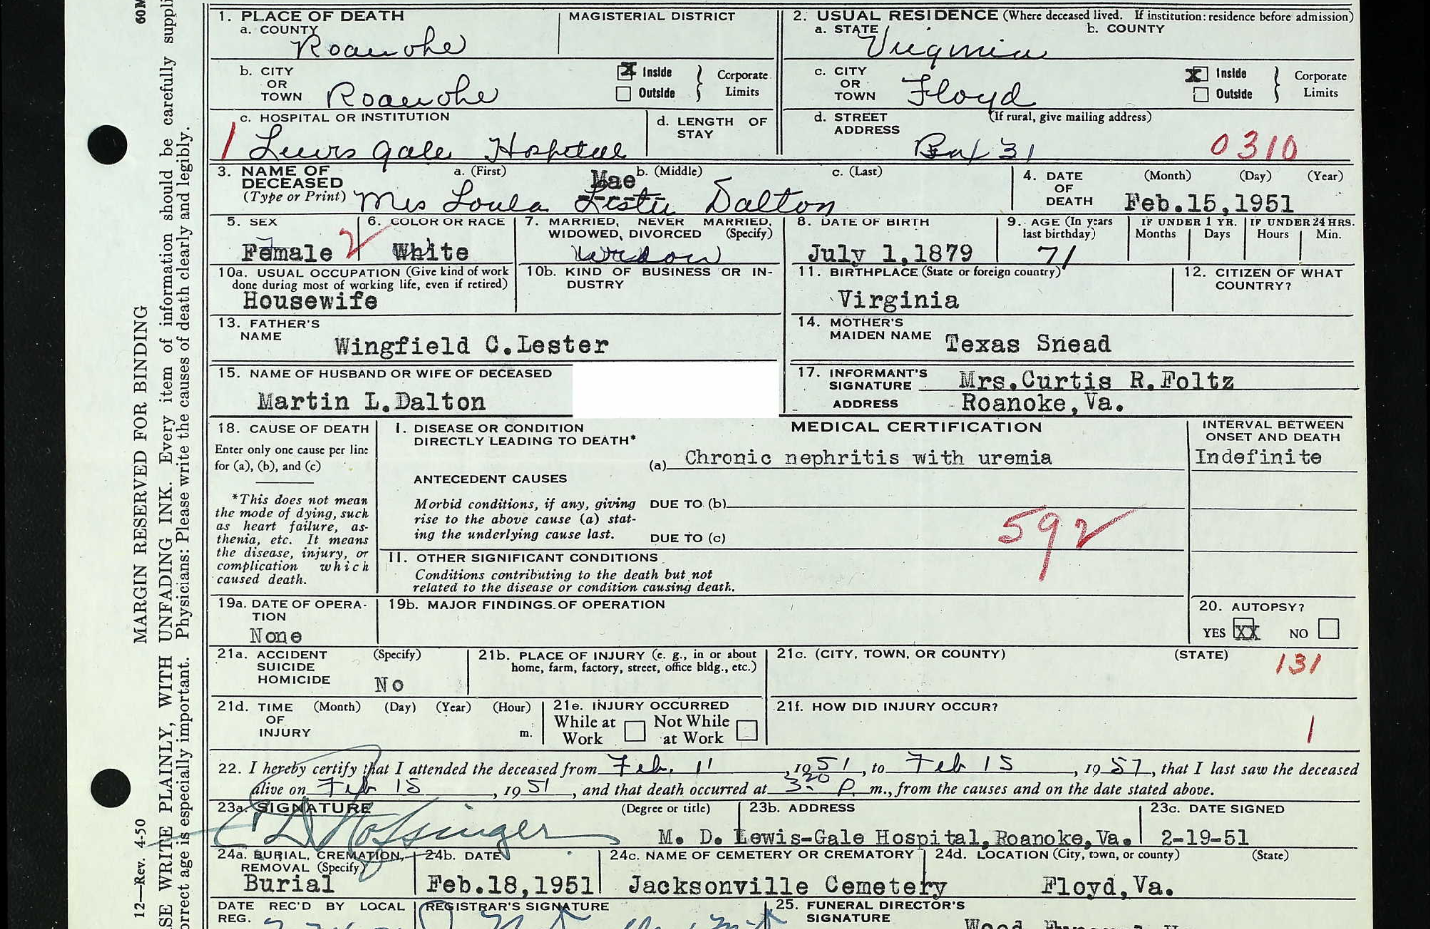 60M
1. PLACE OF DEATH
a. COUNTY
Roanoke
MAGISTERIAL DISTRICT
2. USUAL RESIDENCE (Where deceased lived. If institution: residence before admission)
a. STATE
Virginia
b. COUNTY
b. CITY OR TOWN
Roanoke
X Inside
Outside
Corporate Limits
c. CITY OR TOWN
Floyd
X Inside
Outside
Corporate Limits
c. HOSPITAL OR INSTITUTION
1 Lewis Gale Hospital
d. LENGTH OF STAY
d. STREET ADDRESS
(If rural, give mailing address)
Box 31
0310
3. NAME OF DECEASED
(Type or Print)
a. (First)
b. (Middle)
c. (Last)
Mae
Mrs Loula Lester Dalton
4. DATE OF DEATH
(Month) (Day) (Year)
Feb.15,1951
5. SEX
Female
2
6. COLOR OR RACE
White
7. MARRIED, NEVER MARRIED, WIDOWED, DIVORCED (Specify)
Widow
8. DATE OF BIRTH
July 1,1879
9. AGE (In years last birthday)
71
IF UNDER 1 YR.
Months Days
IF UNDER 24 HRS.
Hours Min.
10a. USUAL OCCUPATION (Give kind of work done during most of working life, even if retired)
Housewife
10b. KIND OF BUSINESS OR INDUSTRY
11. BIRTHPLACE (State or foreign country)
Virginia
12. CITIZEN OF WHAT COUNTRY?
13. FATHER'S NAME
Wingfield C.Lester
14. MOTHER'S MAIDEN NAME
Texas Snead
15. NAME OF HUSBAND OR WIFE OF DECEASED
Martin L.Dalton
17. INFORMANT'S SIGNATURE
Mrs.Curtis R.Foltz
ADDRESS
Roanoke,Va.
18. CAUSE OF DEATH
Enter only one cause per line for (a), (b), and (c)
*This does not mean the mode of dying, such as heart failure, asthenia, etc. It means the disease, injury, or complication which caused death.
MEDICAL CERTIFICATION
I. DISEASE OR CONDITION DIRECTLY LEADING TO DEATH*
(a) Chronic nephritis with uremia
INTERVAL BETWEEN ONSET AND DEATH
Indefinite
ANTECEDENT CAUSES
Morbid conditions, if any, giving rise to the above cause (a) stating the underlying cause last.
DUE TO (b)
DUE TO (c)
592
II. OTHER SIGNIFICANT CONDITIONS
Conditions contributing to the death but not related to the disease or condition causing death.
19a. DATE OF OPERATION
None
19b. MAJOR FINDINGS OF OPERATION
20. AUTOPSY?
YES XX NO
21a. ACCIDENT SUICIDE HOMICIDE
(Specify)
No
21b. PLACE OF INJURY (e. g., in or about home, farm, factory, street, office bldg., etc.)
21c. (CITY, TOWN, OR COUNTY)
(STATE)
131
21d. TIME OF INJURY
(Month) (Day) (Year) (Hour)
m.
21e. INJURY OCCURRED
While at Work
Not While at Work
21f. HOW DID INJURY OCCUR?
1
22. I hereby certify that I attended the deceased from Feb. 11, 1951, to Feb 15, 1951, that I last saw the deceased
alive on Feb 15, 1951, and that death occurred at 3:20 P. m., from the causes and on the date stated above.
23a. SIGNATURE
(Degree or title)
M. D.
23b. ADDRESS
Lewis-Gale Hospital,Roanoke,Va.
23c. DATE SIGNED
2-19-51
24a. BURIAL, CREMATION, REMOVAL (Specify)
Burial
24b. DATE
Feb.18,1951
24c. NAME OF CEMETERY OR CREMATORY
Jacksonville Cemetery
24d. LOCATION (City, town, or county)
(State)
Floyd,Va.
DATE REC'D BY LOCAL REG.
REGISTRAR'S SIGNATURE
25. FUNERAL DIRECTOR'S SIGNATURE
12—Rev. 4-50
MARGIN RESERVED FOR BINDING
SE WRITE PLAINLY, WITH UNFADING INK. Every item of information should be carefully suppli
orrect age is especially important. Physicians: Please write the causes of death clearly and legibly.